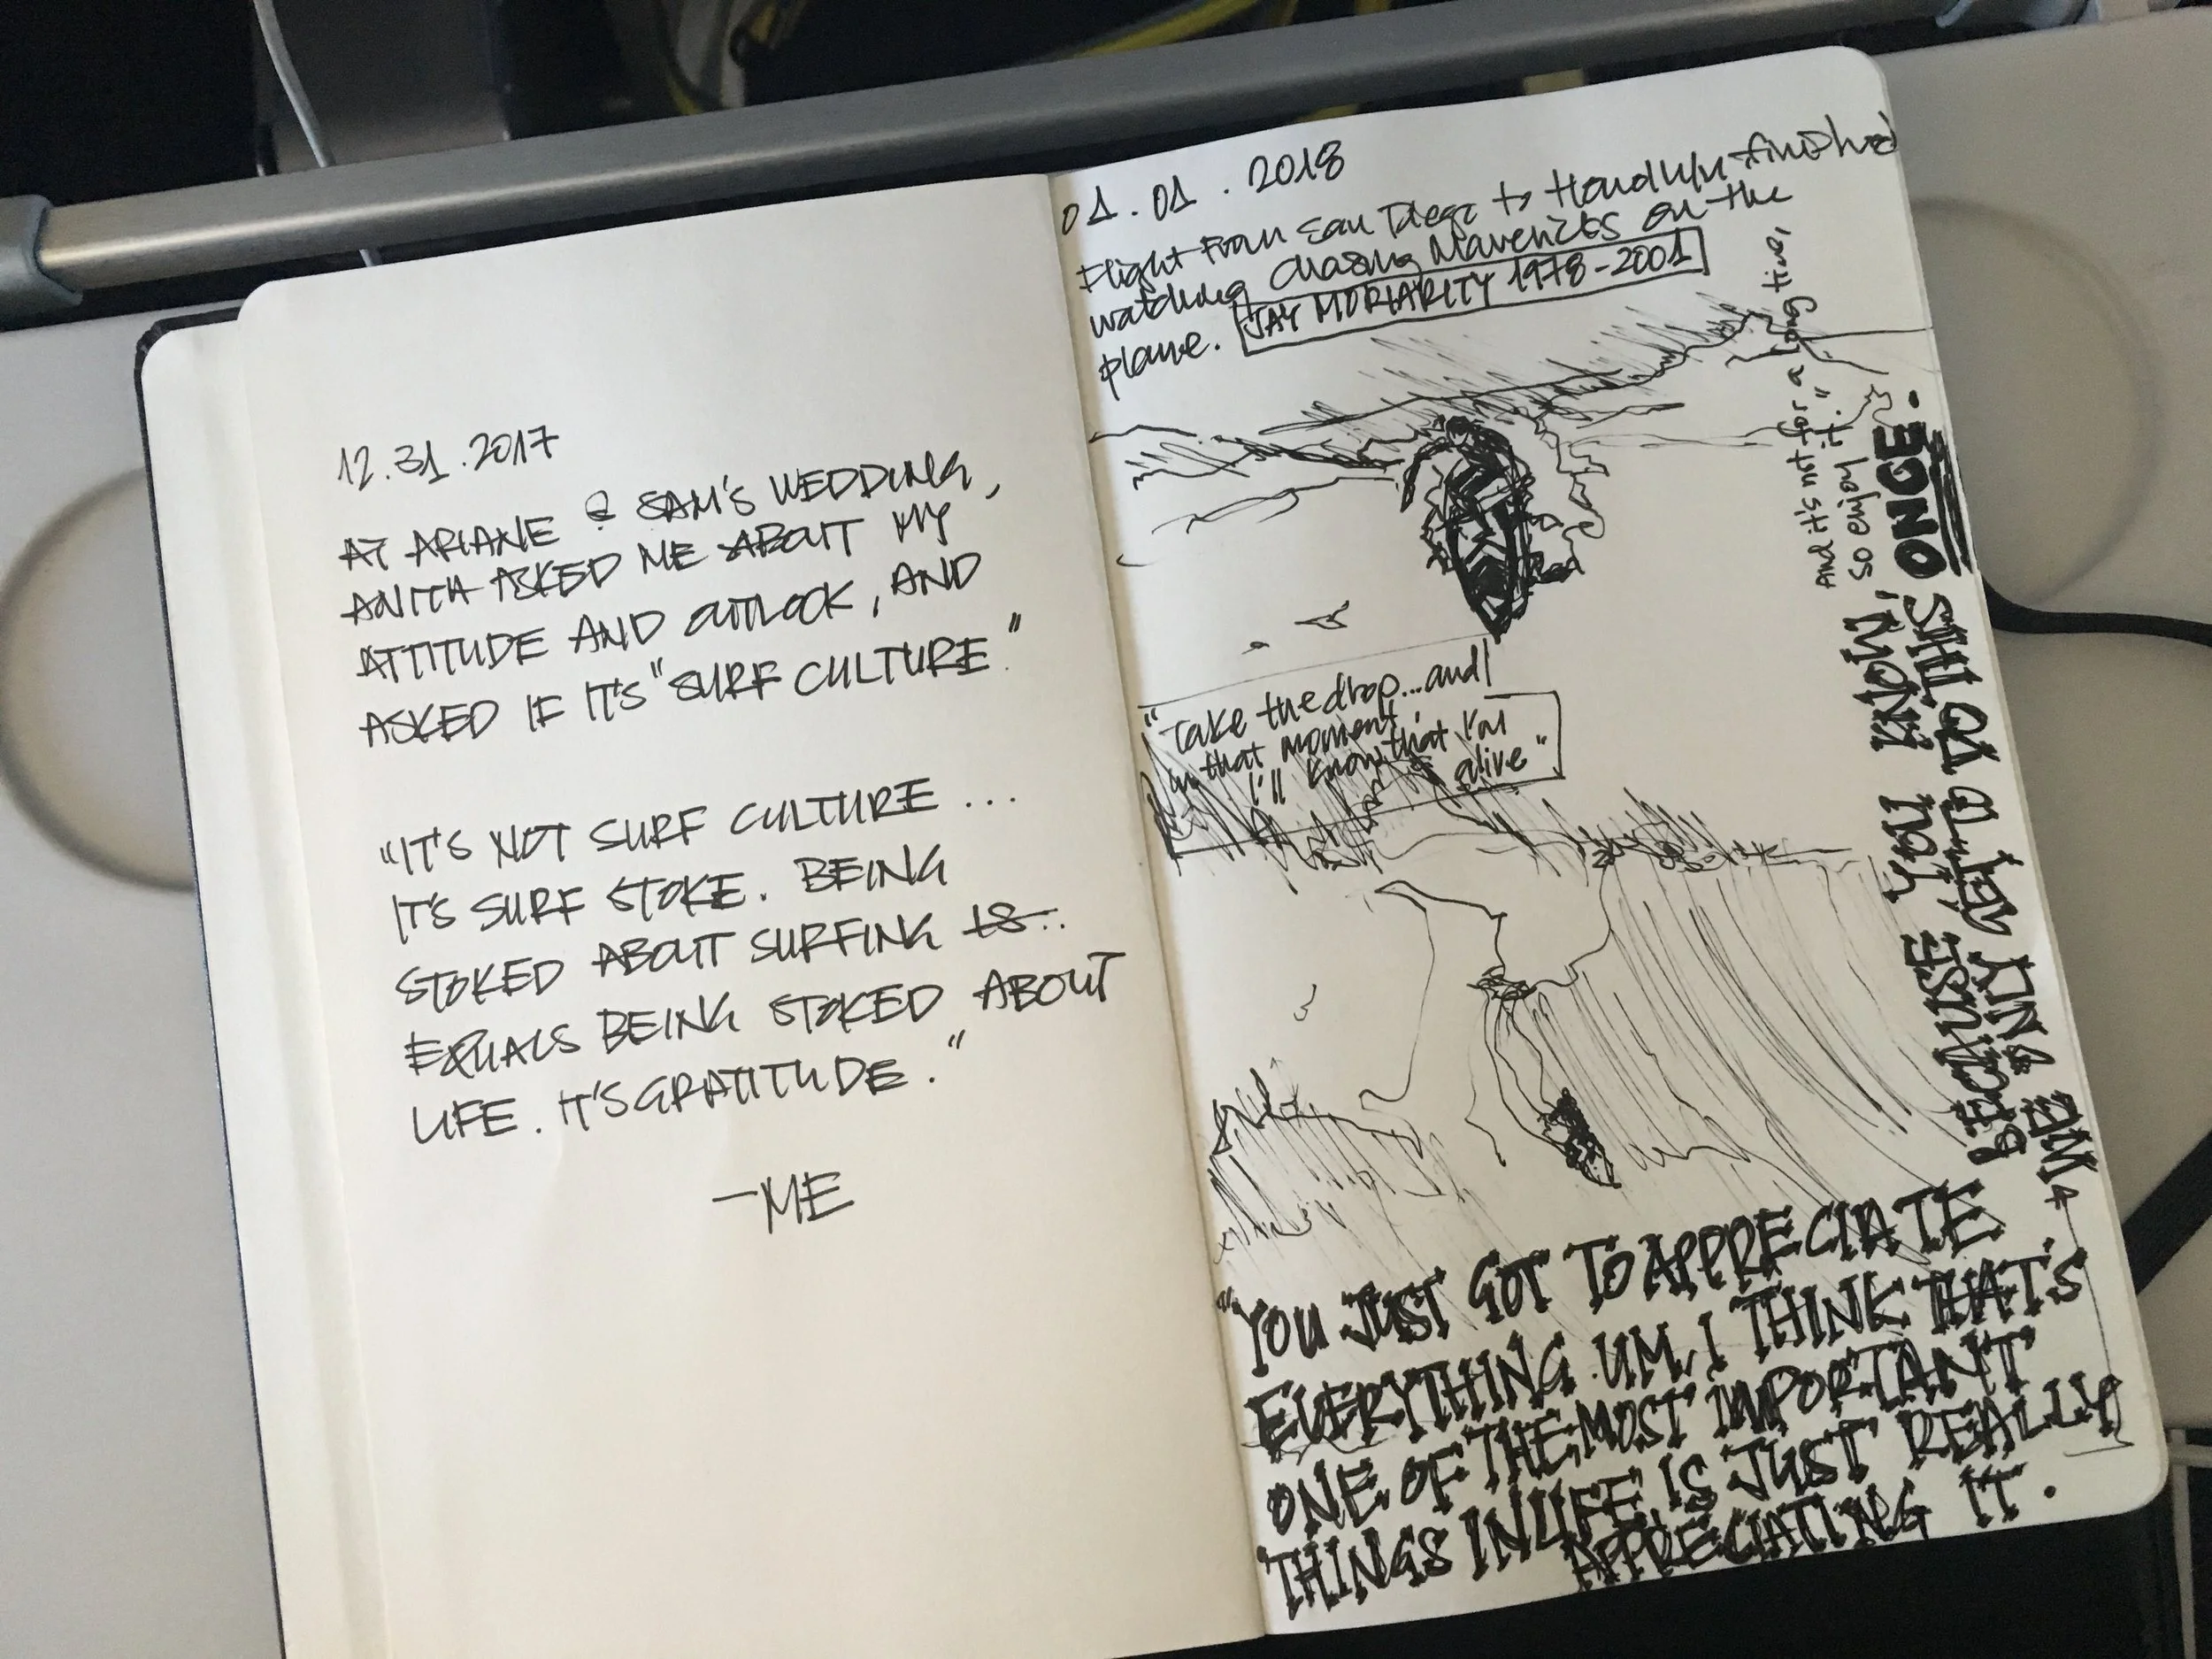 12.31.2017
AT ARIANE & SAM'S WEDDING,
ANITA ASKED ME ABOUT MY
ATTITUDE AND OUTLOOK, AND
ASKED IF IT'S "SURF CULTURE."
"IT'S NOT SURF CULTURE ...
IT'S SURF STOKE. BEING
STOKED ABOUT SURFING IS..
EQUALS BEING STOKED ABOUT
LIFE. IT'S GRATITUDE."
—ME
01.01.2018
Flight from San Diego to Honolulu finished
watching Chasing Mavericks on the
plane. JAY MORIARITY 1978-2001
"Take the drop...and
in that moment,
I'll know that I'm
alive"
"YOU JUST GOT TO APPRECIATE
EVERYTHING. UM, I THINK THAT'S
ONE OF THE MOST IMPORTANT
THINGS IN LIFE IS JUST REALLY
APPRECIATING IT.
BECAUSE, YOU KNOW,
WE ONLY GET TO DO THIS ONCE.
And it's not for a long time,
so enjoy it."